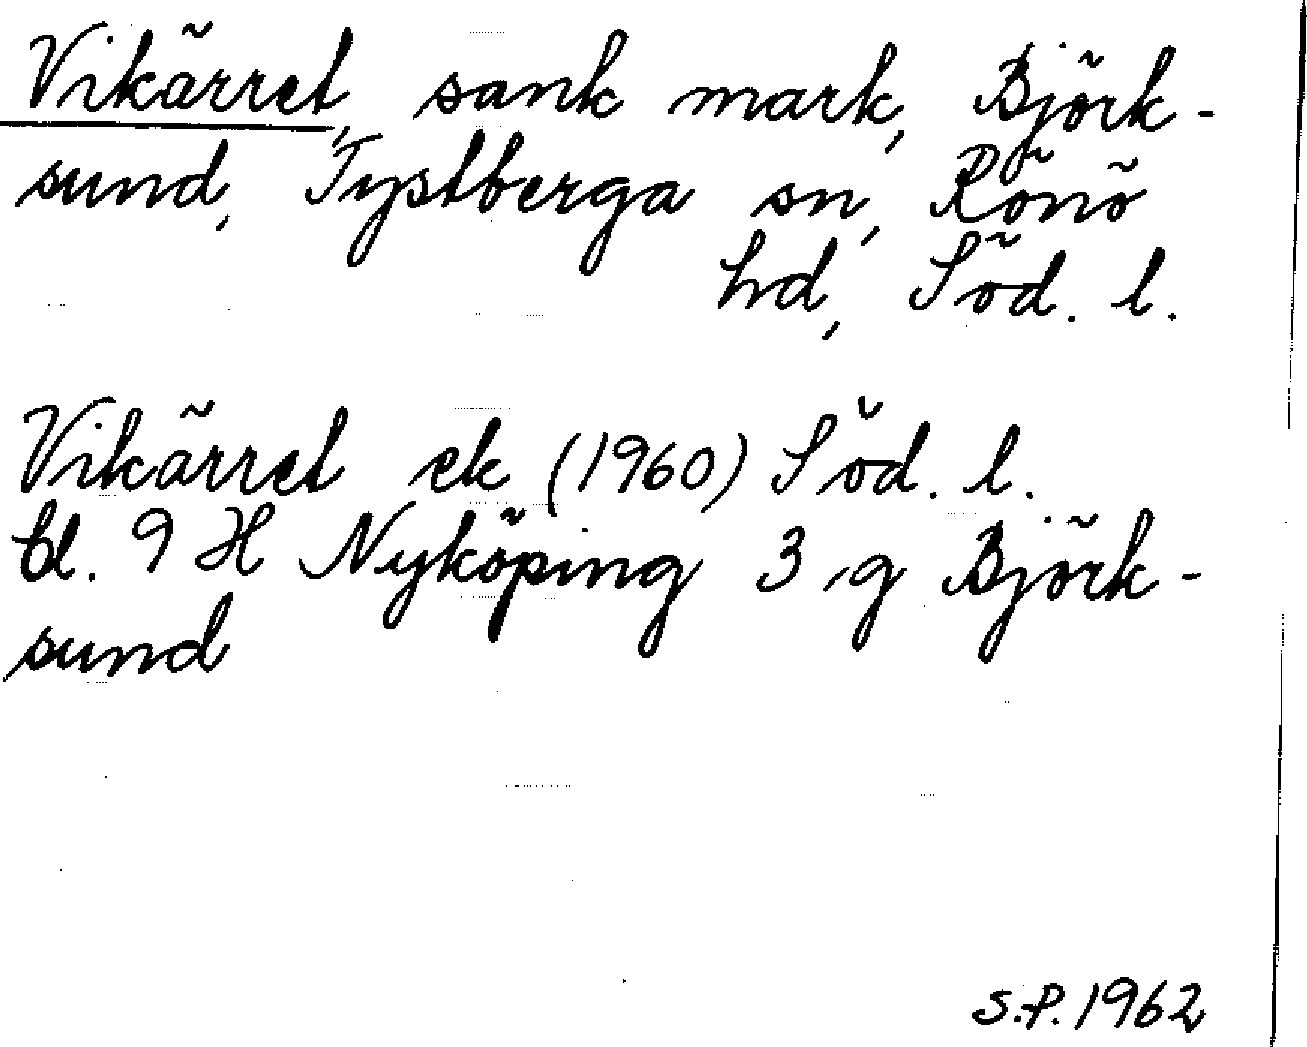 Vikärret, sank mark, Björk-
sund, Tystberga sn, Rönö
hd, Söd. l.
Vikärret ek (1960) Söd. l.
bl. 9 H Nyköping 3 g Björk-
sund
S.P. 1962